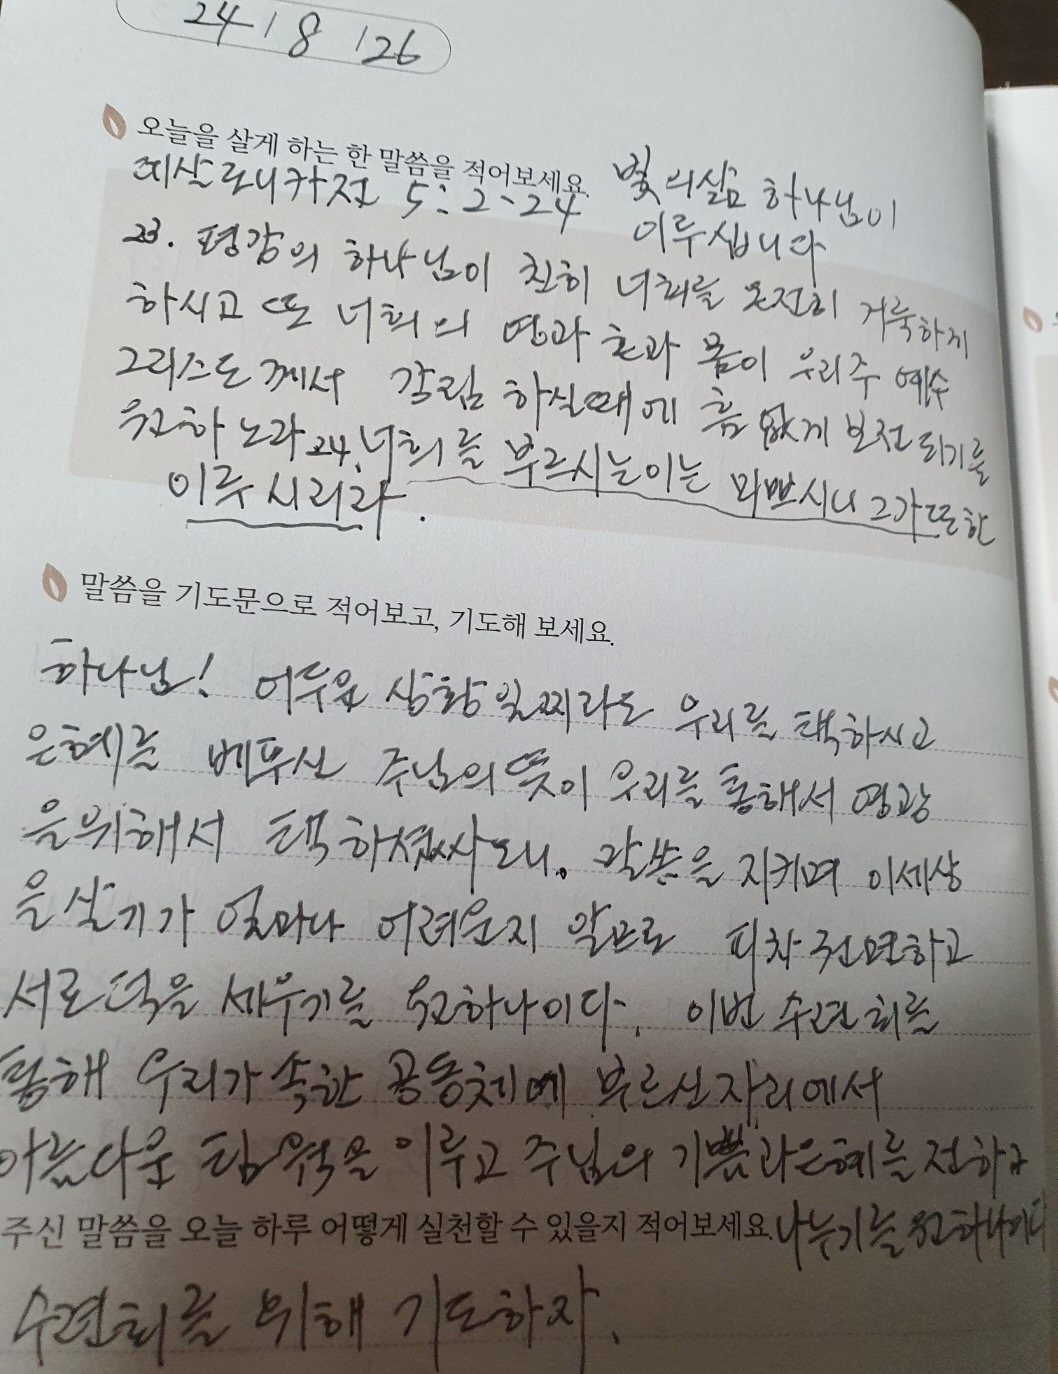 24 / 8 / 26
오늘을 살게 하는 한 말씀을 적어보세요.
데살로니가전 5:2-24 빛의삶 하나님이
이루십니다
23. 평강의 하나님이 친히 너희를 온전히 거룩하게
하시고 또 너희의 영과 혼과 몸이 우리주 예수
그리스도께서 강림 하실때에 흠 없게 보전되기를
원하노라 24. 너희를 부르시는이는 미쁘시니 그가또한
이루시리라.
말씀을 기도문으로 적어보고, 기도해 보세요.
하나님! 어두운 상황일찌라도 우리를 택하시고
은혜를 베푸신 주님의 뜻이 우리를 통해서 영광
을위해서 택하셨사오니. 말씀을 지키며 이세상
을살기가 얼마나 어려운지 알므로 피차권면하고
서로덕을 세우기를 원하나이다. 이번 수련회를
통해 우리가 속한 공동체에 부르신자리에서
아름다운 팀웍을 이루고 주님의 기쁨과은혜를 전하고
주신 말씀을 오늘 하루 어떻게 실천할 수 있을지 적어보세요. 나누기를 원하나이다
수련회를 위해 기도하자.